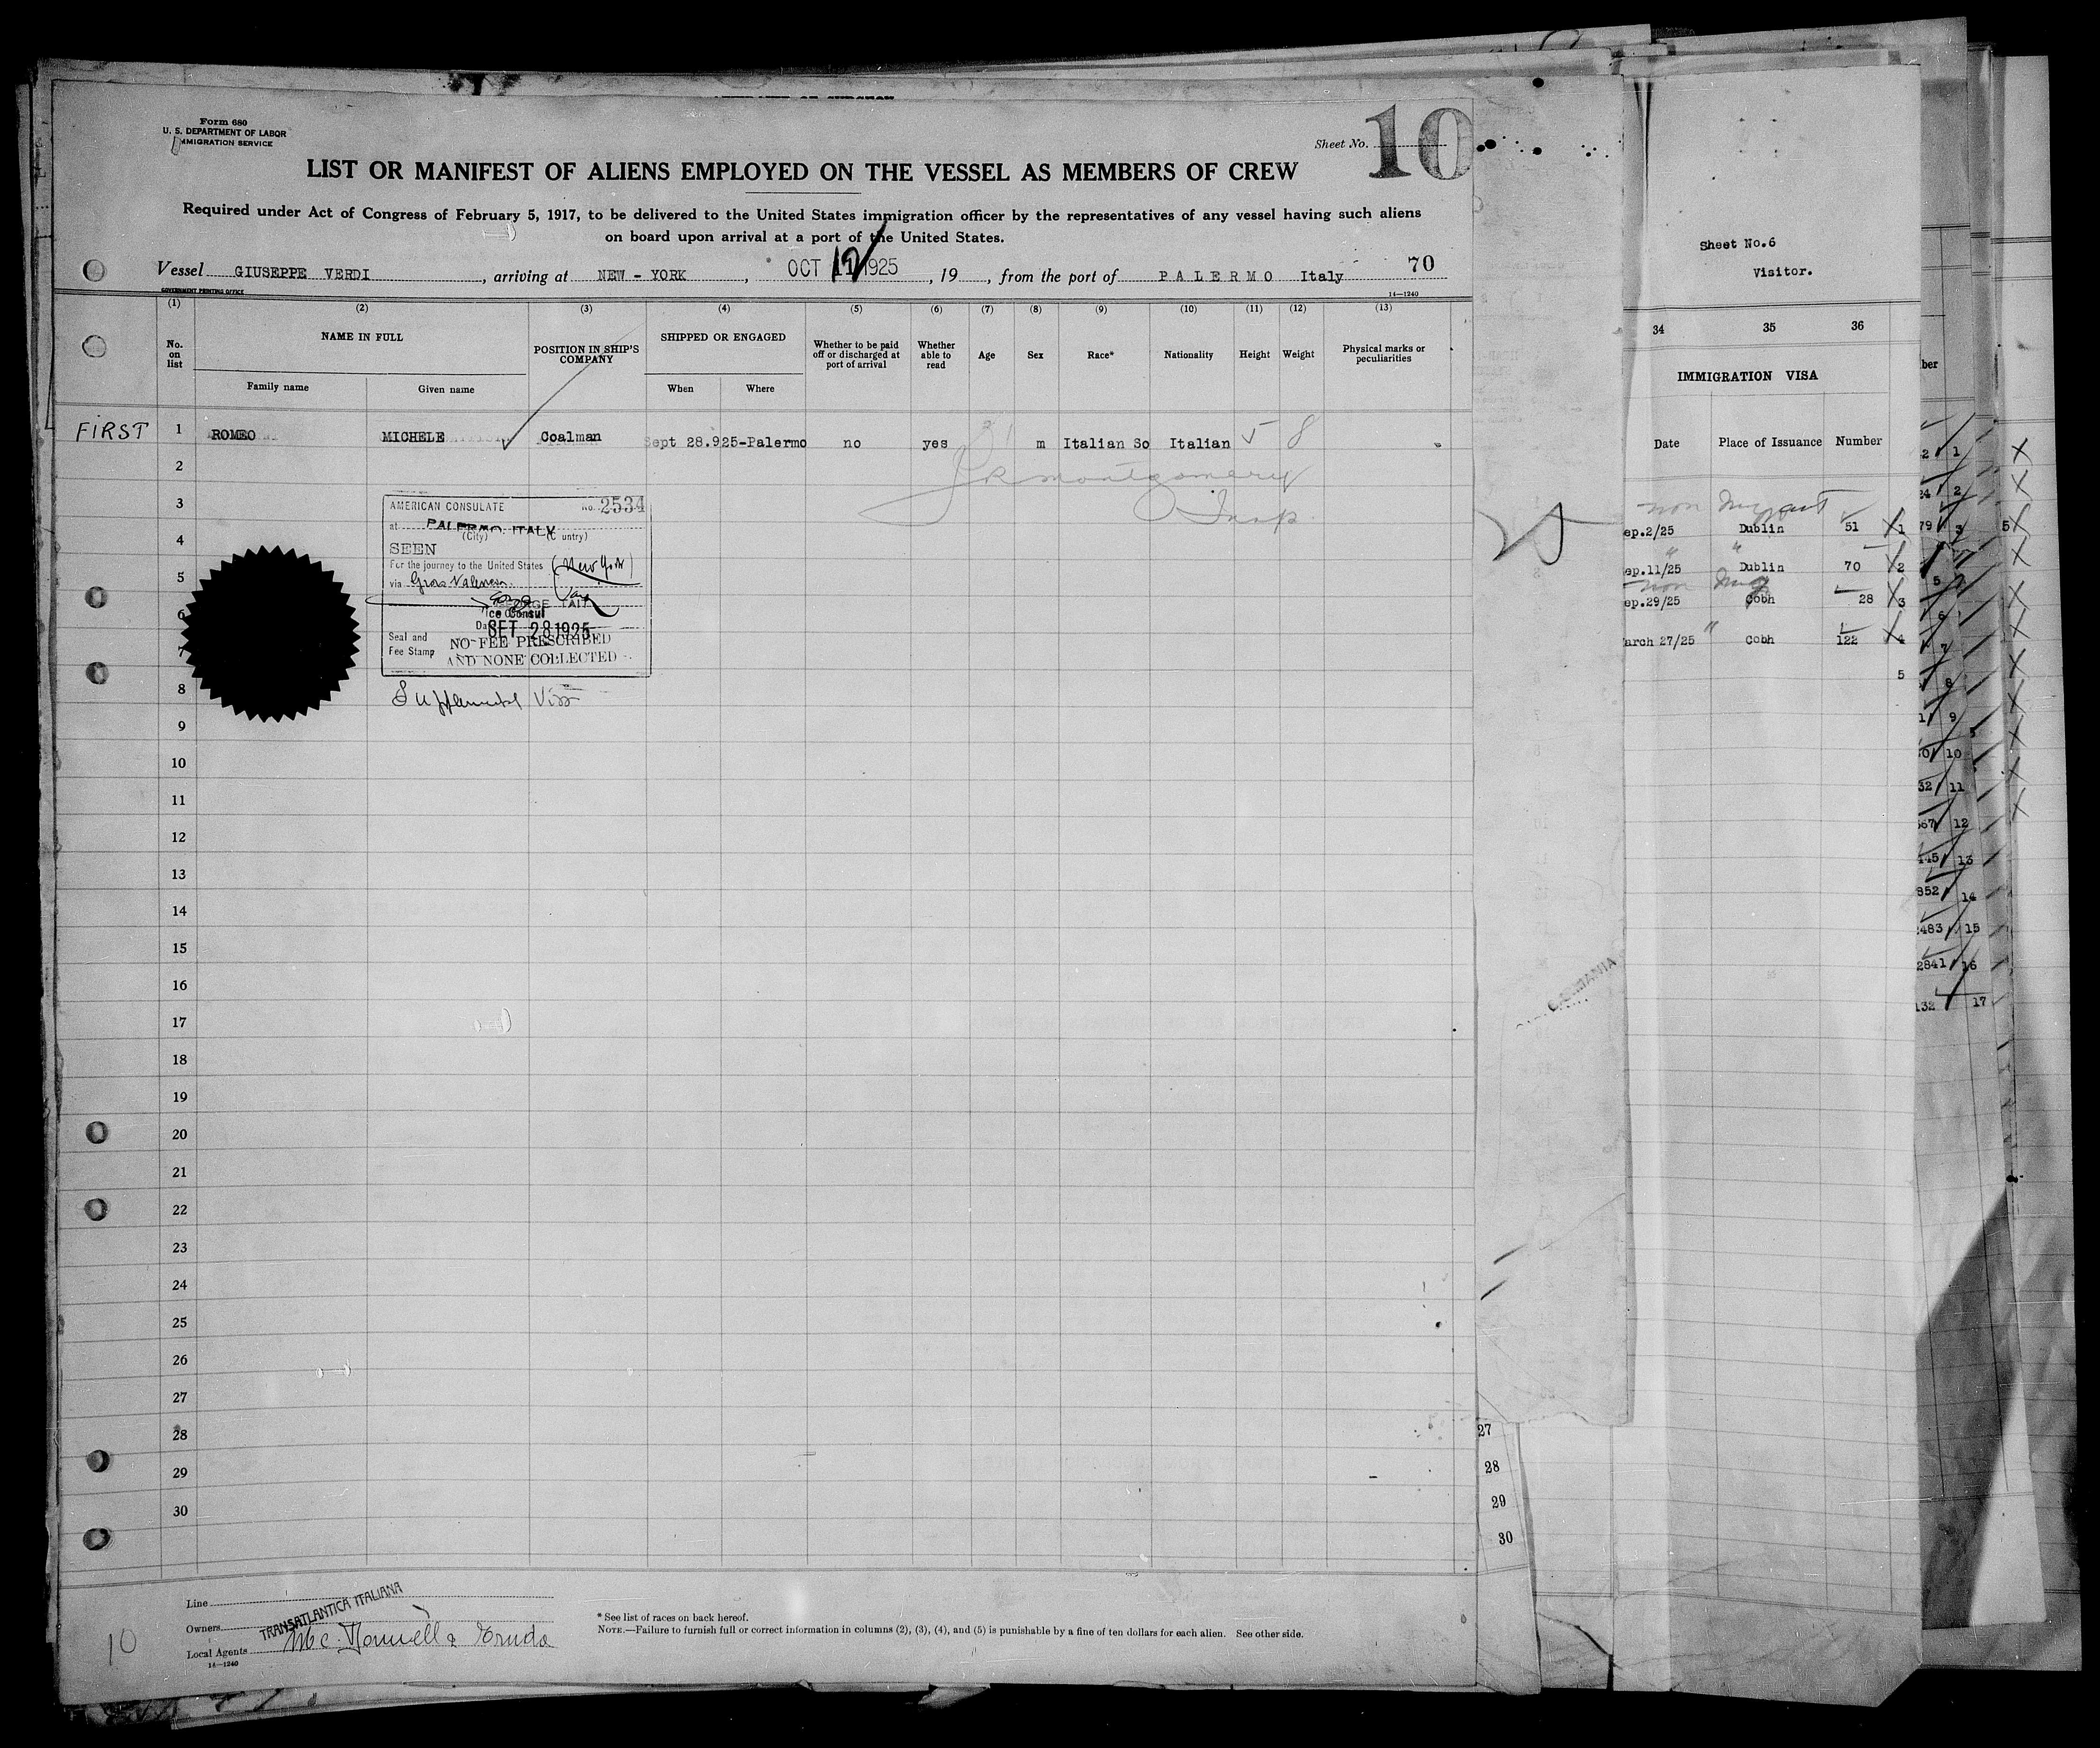 Form 680
U. S. DEPARTMENT OF LABOR
IMMIGRATION SERVICE
Sheet No. 10
LIST OR MANIFEST OF ALIENS EMPLOYED ON THE VESSEL AS MEMBERS OF CREW
Required under Act of Congress of February 5, 1917, to be delivered to the United States immigration officer by the representatives of any vessel having such aliens
on board upon arrival at a port of the United States.
Vessel GIUSEPPE VERDI, arriving at NEW - YORK, OCT 12 1925, 19, from the port of PALERMO Italy 70
GOVERNMENT PRINTING OFFICE
14—1240
(1) (2) (3) (4) (5) (6) (7) (8) (9) (10) (11) (12) (13)
No. on list
NAME IN FULL
Family name
Given name
POSITION IN SHIP'S COMPANY
SHIPPED OR ENGAGED
When
Where
Whether to be paid off or discharged at port of arrival
Whether able to read
Age
Sex
Race*
Nationality
Height
Weight
Physical marks or peculiarities
FIRST 1 ROMEO MICHELE Coalman Sept 28.925-Palermo no yes 31 m Italian So Italian 5 8
2
JR Montgomery
3
Insp.
4
5
6
7
8
AMERICAN CONSULATE No. 2534
at PALERMO, ITALY
(City) (Country)
SEEN
For the journey to the United States (New York)
via
GEORGE TAIT
Vice Consul
Date SET 28 1925
Seal and
Fee Stamp
NO FEE PRESCRIBED
AND NONE COLLECTED
Supplemental Visa
9
10
11
12
13
14
15
16
17
18
19
20
21
22
23
24
25
26
27
28
29
30
Line
Owners
TRANSATLANTICA ITALIANA
Local Agents
14—1240
10
* See list of races on back hereof.
NOTE.—Failure to furnish full or correct information in columns (2), (3), (4), and (5) is punishable by a fine of ten dollars for each alien. See other side.
27
28
29
30
Sheet No.6
Visitor.
34 35 36
IMMIGRATION VISA
Date Place of Issuance Number
ep.2/25 Dublin 51 1
ep.11/25 Dublin 70 2
ep.29/25 Cobh 28 3
arch 27/25 " Cobh 122 4
5
ber
2 1
24 2
79 3
5
6
7
8
1 9
0 10
32 11
567 12
445 13
852 14
483 15
2841 16
132 17